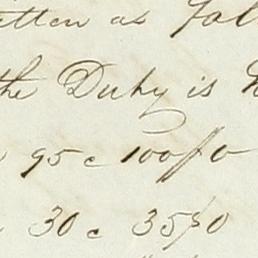 itten as fol
the Duty is
95 c 100/0
30 c 35/0